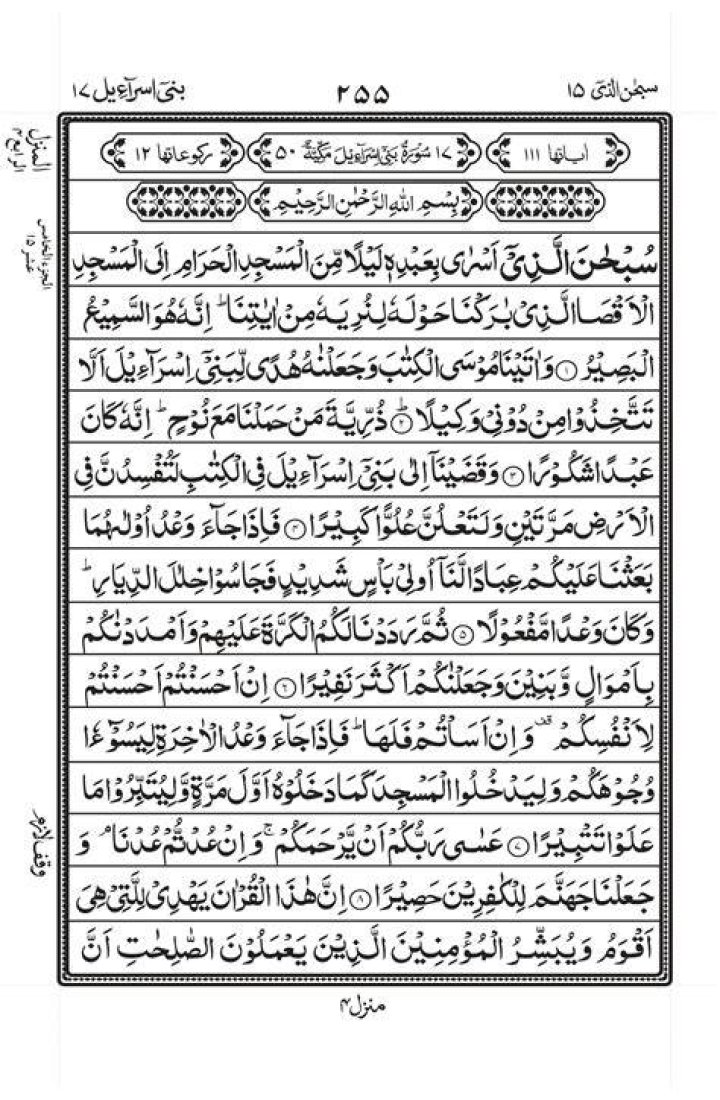 سبحٰن الذی ۱۵
۲۵۵
بنیٓ اسرآءیل ۱۷
اٰیاتها ۱۱۱
۱۷ سُوْرَةُ بَنِیْٓ اِسْرَآءِیْلَ مَكِّیَّةٌ ۵۰
ركوعاتها ۱۲
بِسْمِ اللهِ الرَّحْمٰنِ الرَّحِیْمِ
سُبْحٰنَ الَّذِیْٓ اَسْرٰی بِعَبْدِهٖ لَیْلًا مِّنَ الْمَسْجِدِ الْحَرَامِ اِلَی الْمَسْجِدِ
الْاَقْصَا الَّذِیْ بٰرَكْنَا حَوْلَهٗ لِنُرِیَهٗ مِنْ اٰیٰتِنَا ؕ اِنَّهٗ هُوَ السَّمِیْعُ
الْبَصِیْرُ ۝۱ وَاٰتَیْنَا مُوْسَی الْكِتٰبَ وَجَعَلْنٰهُ هُدًی لِّبَنِیْٓ اِسْرَآءِیْلَ اَلَّا
تَتَّخِذُوْا مِنْ دُوْنِیْ وَكِیْلًا ۝۲ؕ ذُرِّیَّةَ مَنْ حَمَلْنَا مَعَ نُوْحٍ ؕ اِنَّهٗ كَانَ
عَبْدًا شَكُوْرًا ۝۳ وَقَضَیْنَآ اِلٰی بَنِیْٓ اِسْرَآءِیْلَ فِی الْكِتٰبِ لَتُفْسِدُنَّ فِی
الْاَرْضِ مَرَّتَیْنِ وَلَتَعْلُنَّ عُلُوًّا كَبِیْرًا ۝۴ فَاِذَا جَآءَ وَعْدُ اُوْلٰىهُمَا
بَعَثْنَا عَلَیْكُمْ عِبَادًا لَّنَآ اُولِیْ بَاْسٍ شَدِیْدٍ فَجَاسُوْا خِلٰلَ الدِّیَارِ ؕ
وَكَانَ وَعْدًا مَّفْعُوْلًا ۝۵ ثُمَّ رَدَدْنَا لَكُمُ الْكَرَّةَ عَلَیْهِمْ وَاَمْدَدْنٰكُمْ
بِاَمْوَالٍ وَّبَنِیْنَ وَجَعَلْنٰكُمْ اَكْثَرَ نَفِیْرًا ۝۶ اِنْ اَحْسَنْتُمْ اَحْسَنْتُمْ
لِاَنْفُسِكُمْ قف وَاِنْ اَسَاْتُمْ فَلَهَا ؕ فَاِذَا جَآءَ وَعْدُ الْاٰخِرَةِ لِیَسُوْٓءٗا
وُجُوْهَكُمْ وَلِیَدْخُلُوا الْمَسْجِدَ كَمَا دَخَلُوْهُ اَوَّلَ مَرَّةٍ وَّلِیُتَبِّرُوْا مَا
عَلَوْا تَتْبِیْرًا ۝۷ عَسٰی رَبُّكُمْ اَنْ یَّرْحَمَكُمْ ۚ وَاِنْ عُدْتُّمْ عُدْنَا ۘ وَ
جَعَلْنَا جَهَنَّمَ لِلْكٰفِرِیْنَ حَصِیْرًا ۝۸ اِنَّ هٰذَا الْقُرْاٰنَ یَهْدِیْ لِلَّتِیْ هِیَ
اَقْوَمُ وَیُبَشِّرُ الْمُؤْمِنِیْنَ الَّذِیْنَ یَعْمَلُوْنَ الصّٰلِحٰتِ اَنَّ
المنزل
الرابع ۴
الجزء الخامس
عشر ۱۵
وقف لازم
منزل ۴